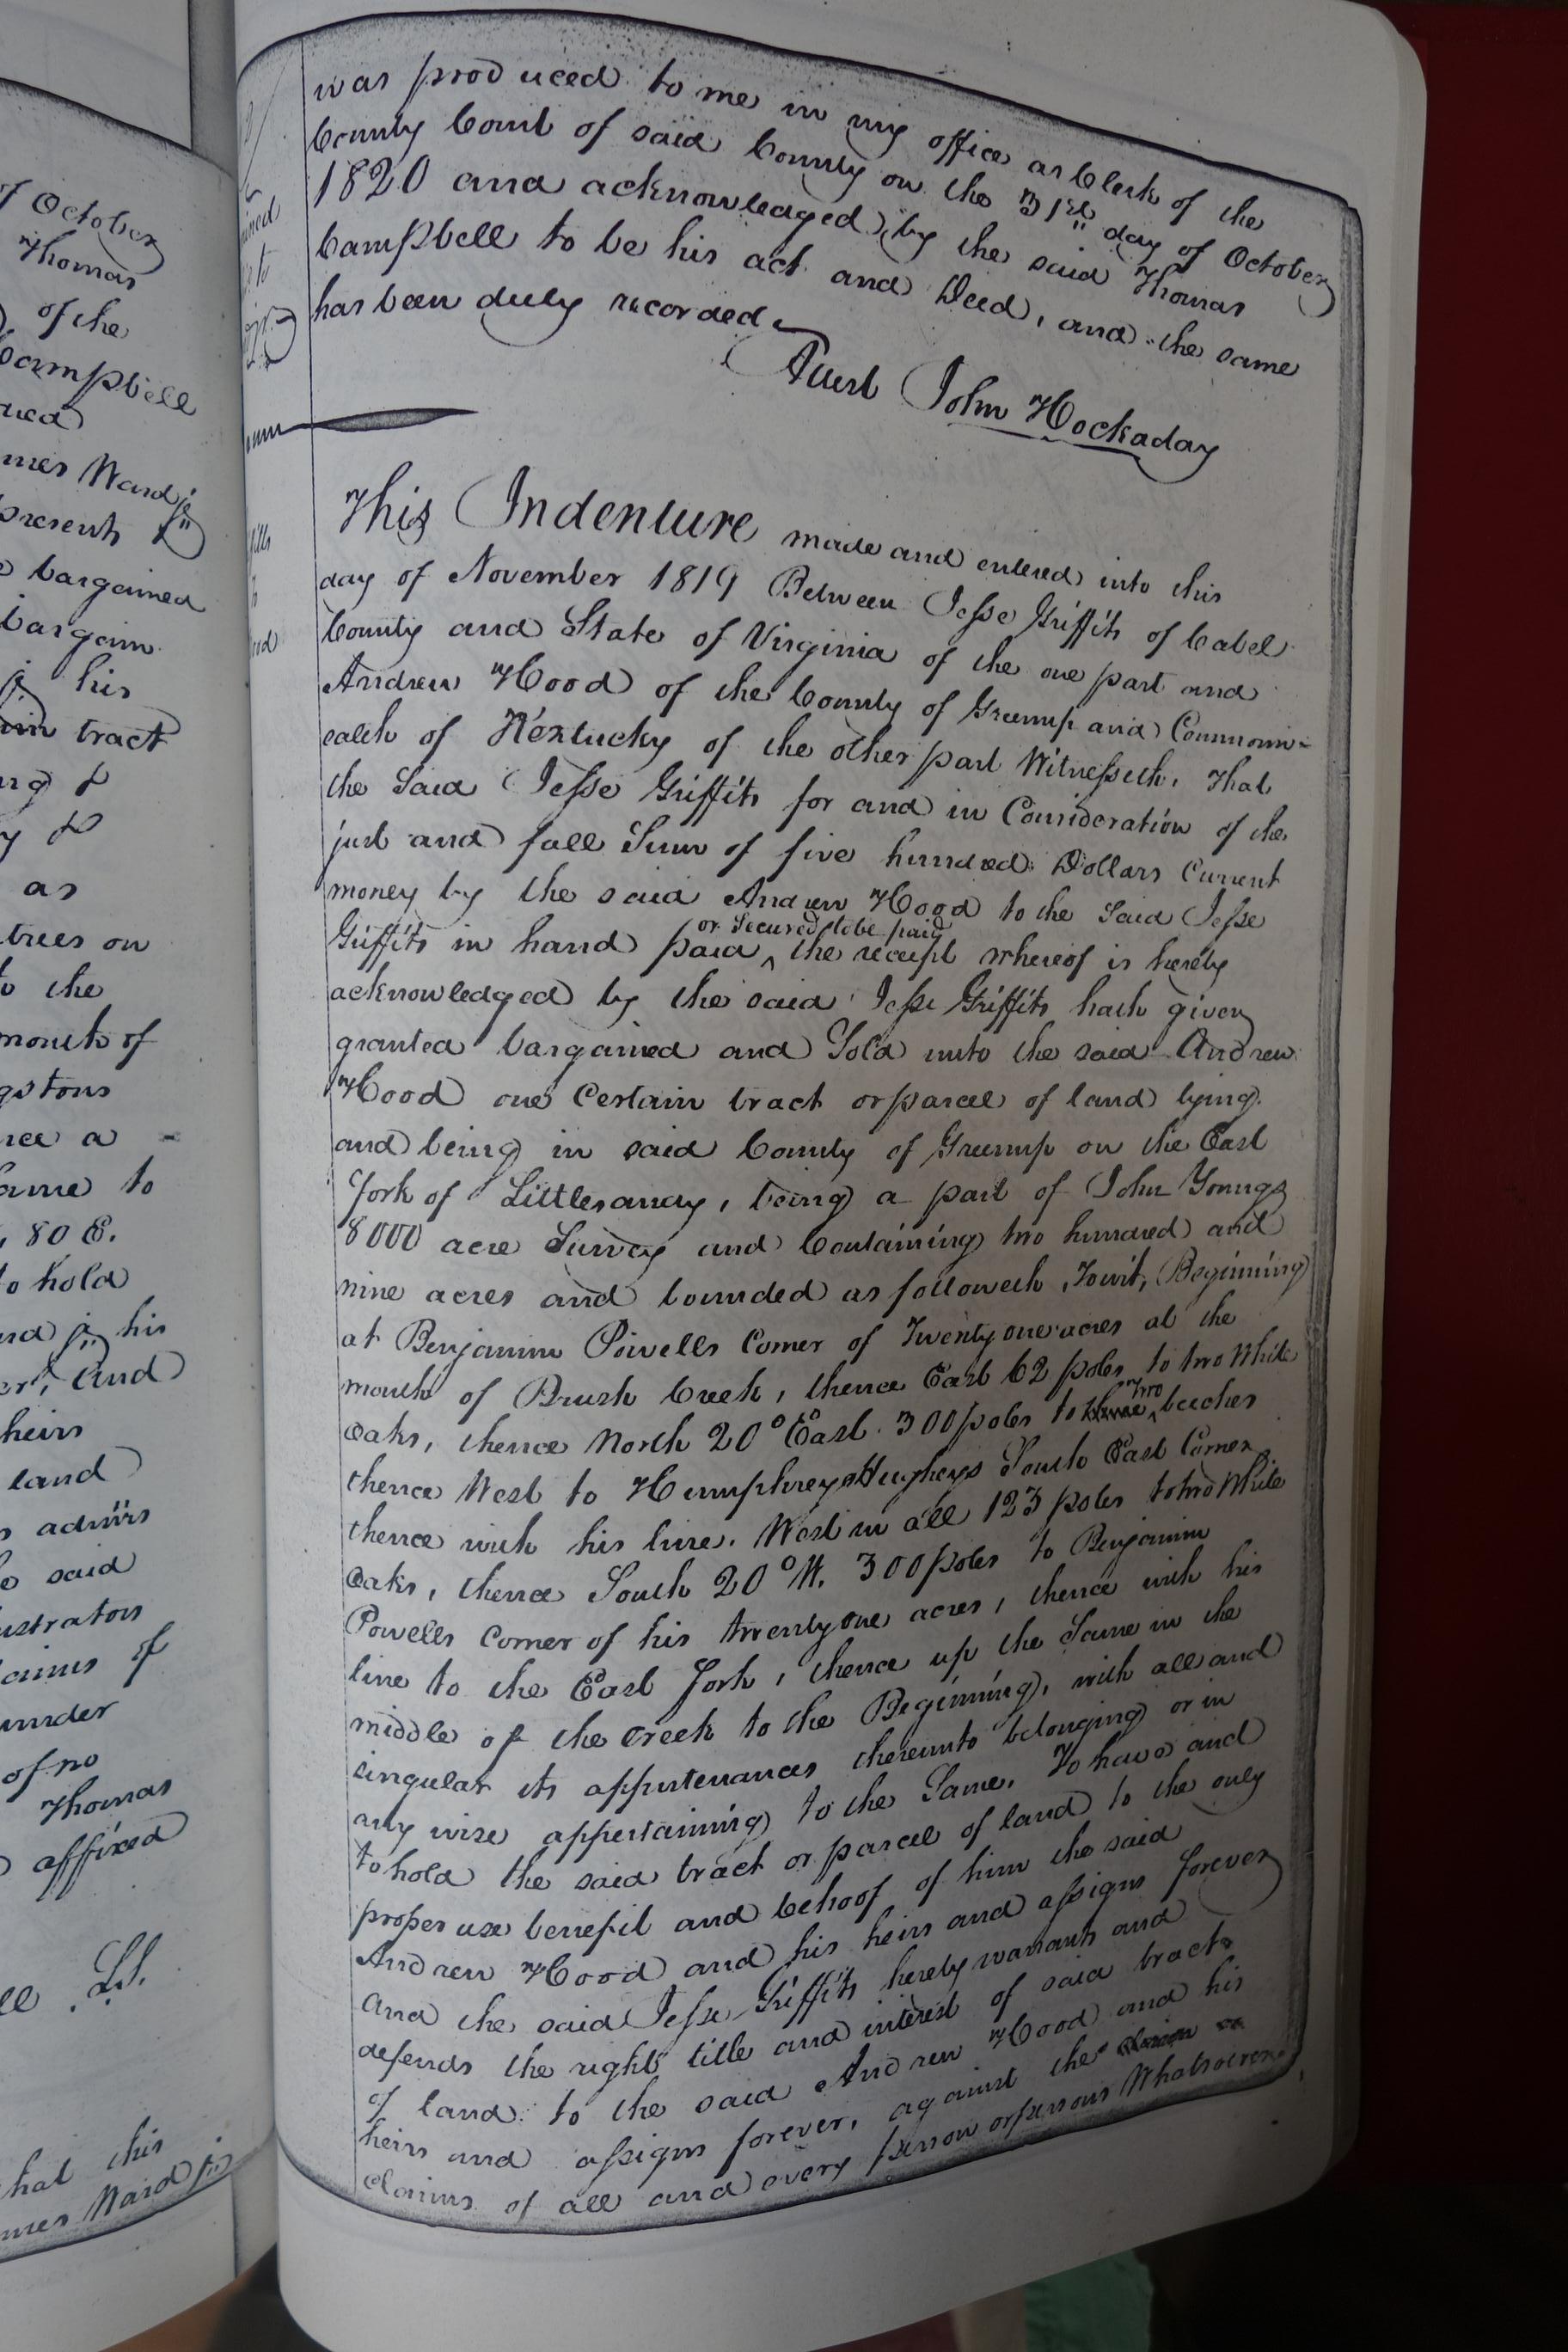 of October
Thomas
of the
Campbell
mes Ward jr
present
bargained
bargain
jr his
tract
&
y &
as
trees on
to the
mouth of
gstons
nce a
ame to
80 E.
to hold
nd jr his
er, and
heirs
land
s admirs
e said
istrators
aims of
under
of no
Thomas
affixed
ell LS.
hat this
mes Ward jr
was produced to me in my office as Clerk of the
County Court of said County on the 31st day of October
1820 and acknowledged by the said Thomas
Campbell to be his act and Deed, and the same
has been duly recorded
Attest John Hockaday
This Indenture made and entered into this
day of November 1819 Between Jesse Griffith of Cabel
County and State of Virginia of the one part and
Andrew Hood of the County of Greenup and Commonw-
ealth of Kentucky of the other part Witnesseth, That
the Said Jesse Griffith for and in Consideration of the
just and full Sum of five hundred Dollars Current
money by the said Andrew Hood to the Said Jesse
Griffith in hand paid ^ or Secured to be paid the receipt whereof is hereby
acknowledged by the said Jesse Griffith hath given
granted bargained and Sold unto the said Andrew
Hood one Certain tract or parcel of land lying
and being in said County of Greenup on the East
fork of Littlesandy, being a part of John Youngs
8000 acre Survey and Containing two hundred and
nine acres and bounded as followeth, Towit, Beginning
at Benjamin Powells Corner of Twenty one acres at the
mouth of Brush Creek, thence East 62 poles to two White
Oaks, thence North 20° East 300 poles to ^ two beeches
thence West to Humphreys Hugheys South East Corner
thence with his line. West in all 123 poles to two White
Oaks, thence South 20° W. 300 poles to Benjamin
Powells Corner of his twenty one acres, thence with his
line to the East fork, thence up the Same in the
middle of the creek to the Beginning, with all and
singular its appurtenances thereunto belonging or in
any wise appertaining to the Same. To have and
to hold the said tract or parcel of land to the only
proper use benefit and behoof of him the said
Andrew Hood and his heirs and assigns forever
and the said Jesse Griffith hereby warrants and
defends the right title and interest of said tract
of land to the said Andrew Hood and his
heirs and assigns forever, against the claim or
claims of all and every person or persons Whatsoever